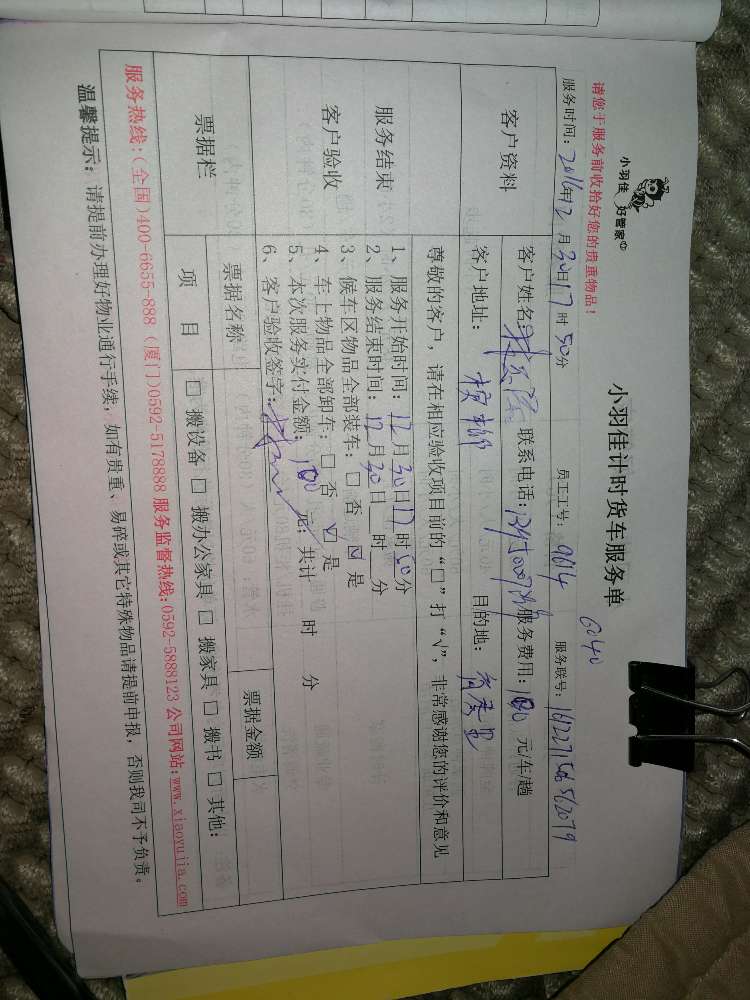 小羽佳 好管家
小羽佳计时货车服务单
6040
请您于服务前收拾好您的贵重物品！
服务时间：2016年12月30日17时50分 员工工号：9614 服务联号：
客户资料
客户姓名： 联系电话： 服务费用：180 元/车/趟
客户地址： 目的地：
尊敬的客户，请在相应验收项目前的“□”打“√”，非常感谢您的评价和意见
服务结束
客户验收
1、服务开始时间：12月30日17时50分
2、服务结束时间：12月30日 时 分
3、候车区物品全部装车：□ 否 ☑ 是
4、车上物品全部卸车：□ 否 ☑ 是
5、本次服务实付金额：180元；共计 时 分
6、客户验收签字：
票据栏
票据名称 票据金额
项 目 □ 搬设备 □ 搬办公家具 □ 搬家具 □ 搬书 □ 其他：
服务热线：(全国)400-6655-888 (厦门)0592-5178888 服务监督热线：0592-5888123 公司网站：www.xiaoyujia.com
温馨提示：请提前办理好物业通行手续，如有贵重、易碎或其它特殊物品请提前申报，否则我司不予负责。